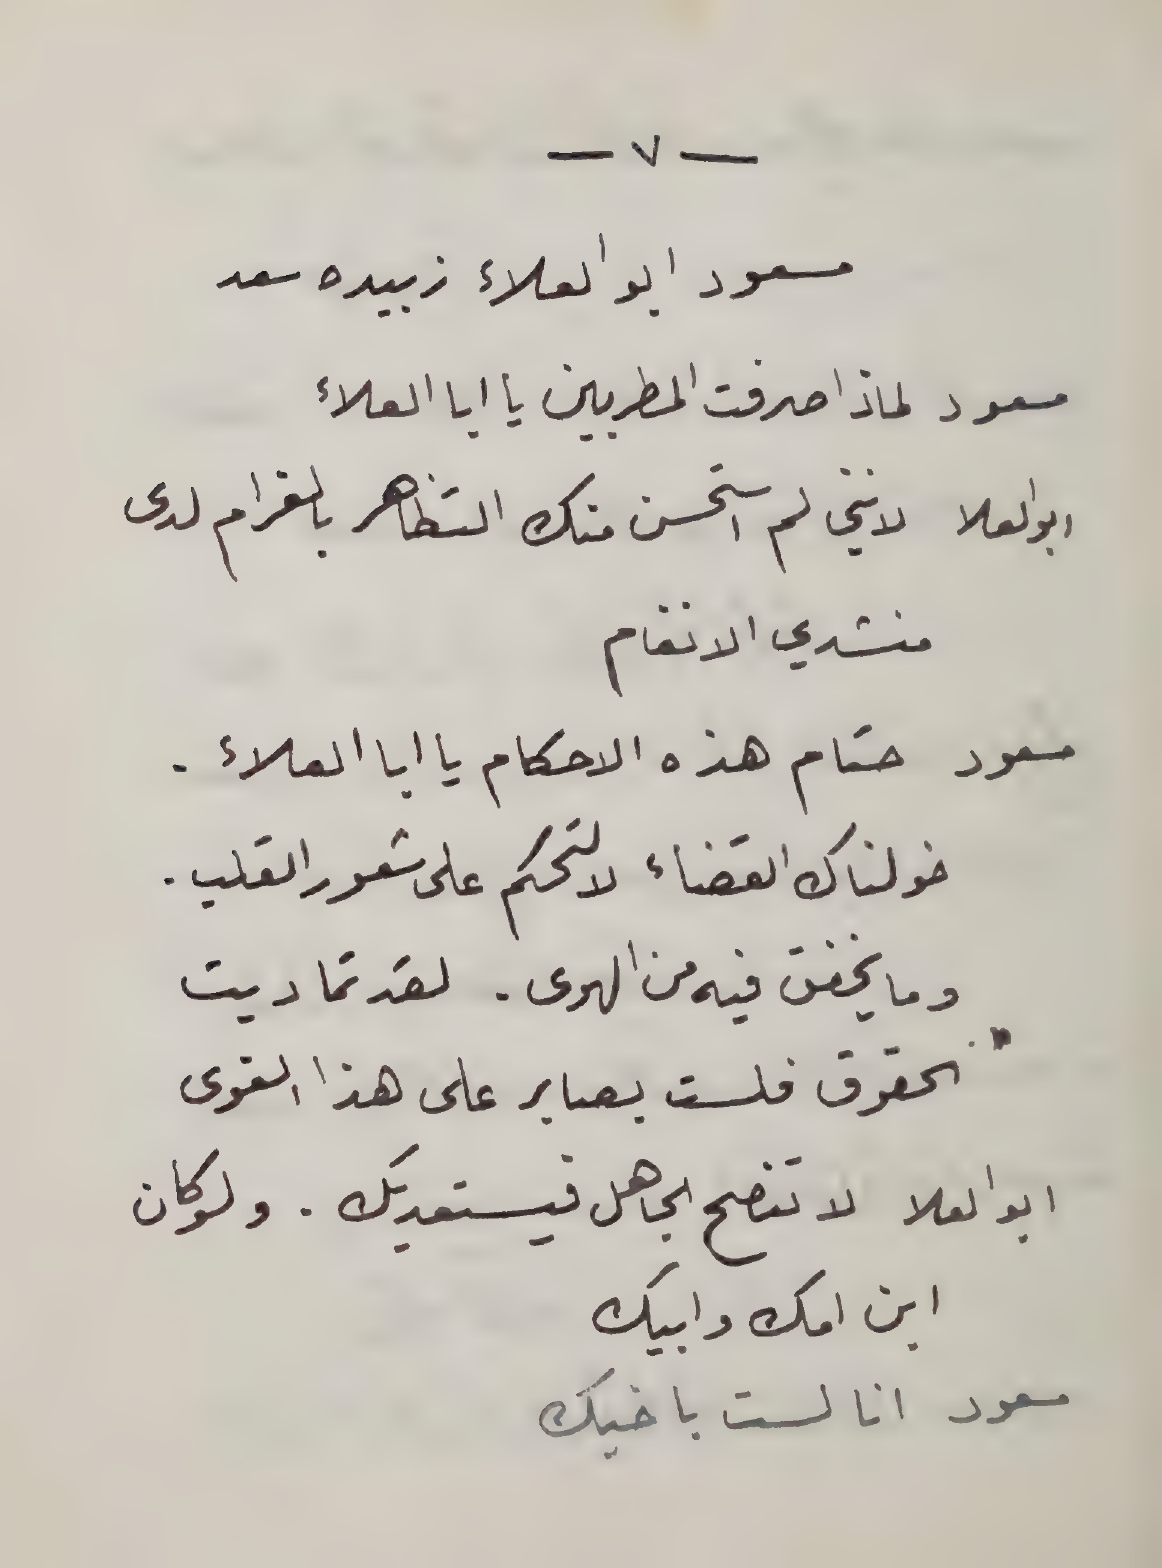 — ٧ —
مسعود ابو العلاء زبيده سعد
مسعود لماذا صرفت المطربين يا ابا العلاء
ابو العلا لانني لم استحسن منك التظاهر بالغرام لدى
منشدي الانغام
مسعود حتام هذه الاحكام يا ابا العلاء .
خولناك القضاء لا لتحكم على شعور القلب .
وما يخفق فيه من الهوى . لقد تماديت
الحقوق فلست بصابر على هذا القوى
ابو العلا لا تنصح الجاهل فيستعديك . ولو كان
ابن امك وابيك
مسعود انا لست باخيك